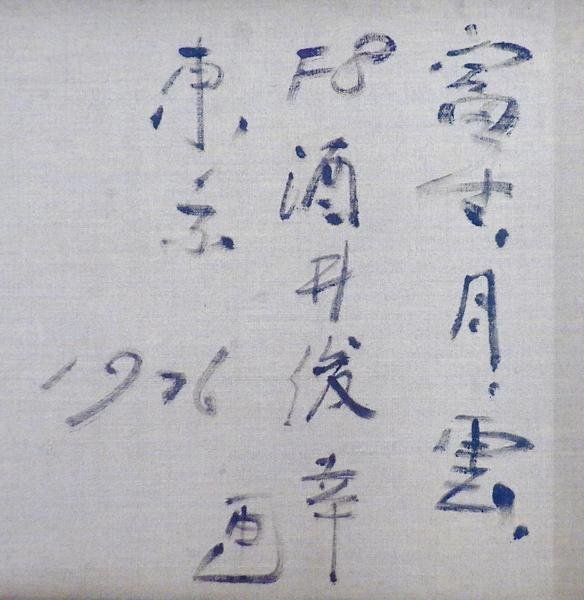 富士.月.雲.
F8 酒井俊幸
東京
1976
画